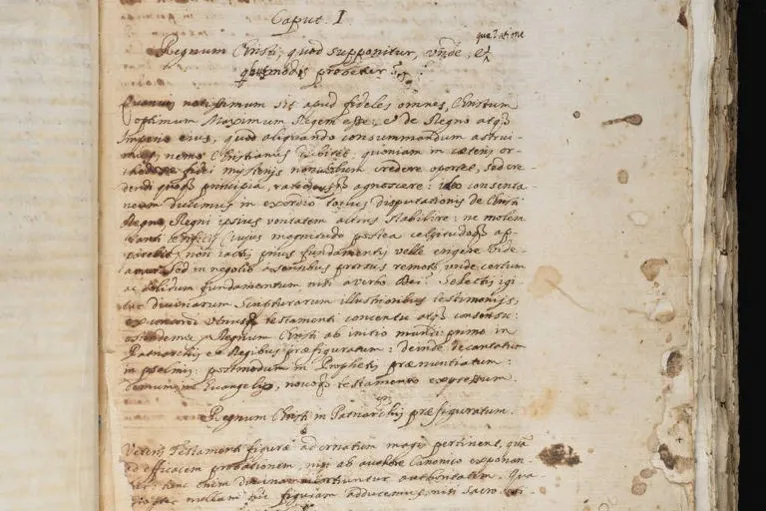 Caput. I
Regnum Christi, quod supponitur, vnde, et
que ratione
quomodo probetur
Quamuis notissimum sit apud fideles omnes, Christum
optimum Maximum Regem esse, et de Regno atq3
Imperio eius, quod aliquando consummandum astrui-
mus, nemo Christianus dubitet: quoniam in cæteris or-
thodoxæ fidei mysterijs non solum credere oportet, sed cre-
dendi quoq3 principia, agnoscere: ideo consenta-
neum ducimus in exordio totius disputationis de Christi
Regno, Regni ipsius veritatem altius stabilire: ne molem
tanti ædificij Cuius magnitudo postea celsitudoq3 ap-
parebit, non iactis prius fundamentis velle erigere vide-
amur. Sed in negotio a sensibus prorsus remoto vnde certum
ac solidum fundamentum nisi a verbo Dei? Selectis igi-
tur diuinarum Scripturarum illustrioribus testimonijs,
ex concordi vtriusq3 testamenti concentu atq3 consensu:
ostendemus Regnum Christi ab initio mundi primo in
Patriarchis et Regibus præfiguratum: deinde decantatum
in psalmis: postmodum in Prophetis prænuntiatum:
demum in Euangelijs, nouoq3 testamento expressum.
Regnum Christi in Patriarchis præfiguratum.
Veteris Testamenti figuræ ad ornatum magis pertinent, quam
ad efficacem probationem, nisi ab authore Canonico exponan-
tur: tunc enim diuinam sortiuntur authoritatem. Qua
propter nullam hic figuram adducemus, nisi sacro